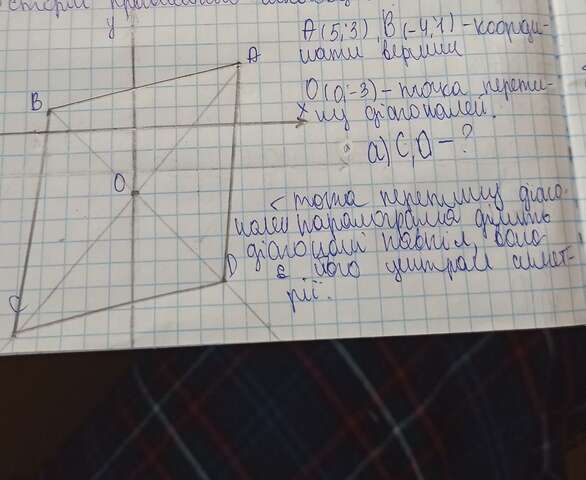 y
A(5;3), B(-4;1) - коорди-
нати вершин
O(0;-3) - точка перети-
ну діагоналей.
x
а) C, D - ?
A
B
O
D
C
точка перетину діаго-
налей паралограма ділить
діагоналі навпіл, вона
є його центром симет-
рії.